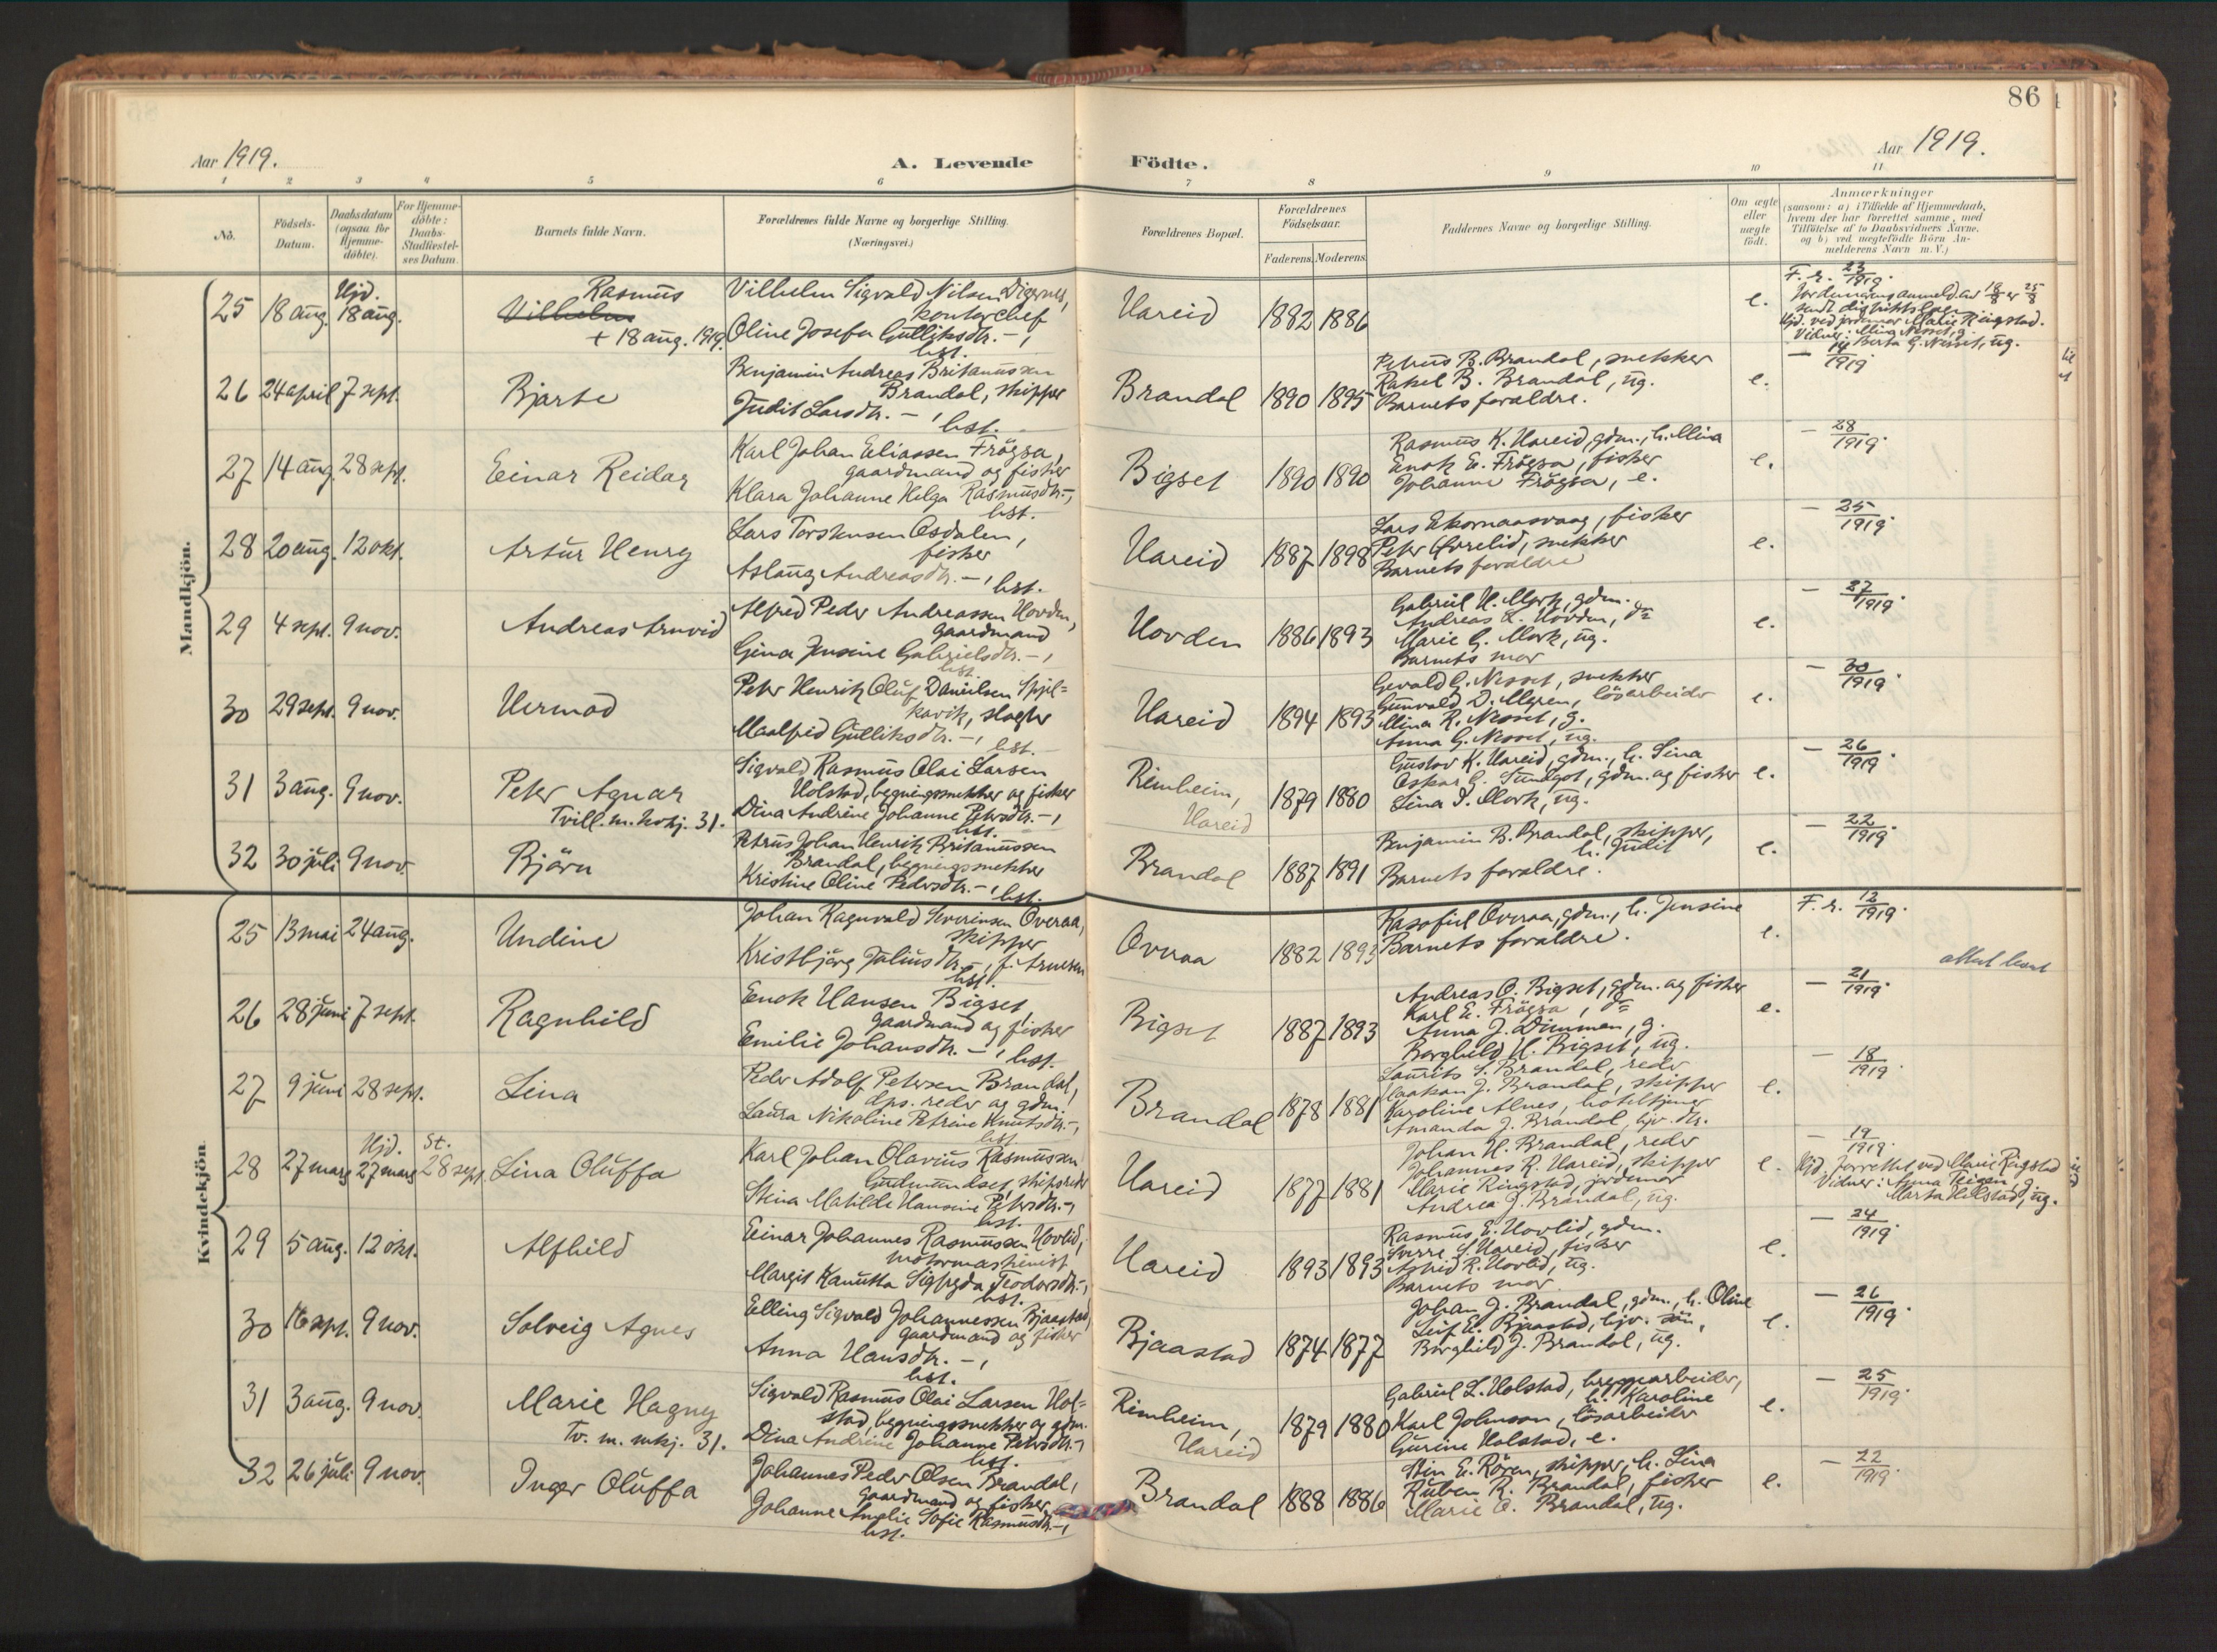 86
Aar 1919.
A. Levende Födte.
Aar 1919.
1 2 3 4 5 6 7 8 9 10 11
No.
Födsels-Datum.
Daabsdatum (ogsaa for Hjemme-döbte).
For Hjemme-döbte: Daabs-Stadfæstel-ses Datum.
Barnets fulde Navn.
Forældrenes fulde Navne og borgerlige Stilling. (Næringsvei.)
Forældrenes Bopæl.
Forældrenes Födselsaar.
Faderens. Moderens.
Faddernes Navne og borgerlige Stilling.
Om ægte eller uægte födt.
Anmærkninger
(saasom: a) i Tilfælde af Hjemmedaab,
hvem der har forrettet samme, med
Tilföielse af to Daabsvidners Navne,
og b) ved uægtefödte Börn An-
melderens Navn m. V.)
Mandkjön.
25 18 aug. Hjd. 18 aug.
Rasmus
Vilhelm
+ 18 aug. 1919.
Vilhelm Sigvald Nilsen Digernes,
kontorchef
Oline Josefa Gulliksdtr. —,
hst.
Hareid 1882 1886
e.
F. r. 23/1919.
Hjd. ved jordmor Marie Ringstad.
Berta G. Nesset, ug.
26 24 april 7 sept.
Bjarte
Benjamin Andreas Britanussen
Brandal, skipper
Judit Larsdtr. —, hst.
Brandal 1890 1895
Petrus B. Brandal, snekker
Rakel B. Brandal, ug.
Barnets forældre.
e.
— 14/1919.
27 14 aug. 28 sept.
Einar Reidar
Karl Johan Eliassen Frögsa,
gaardmand og fisker
Klara Johanne Helga Rasmusdtr. —,
hst.
Bigset 1890 1890
Rasmus K. Hareid, gdm., h. Mina
Enok E. Frögsa, fisker
Johanne Frögsa, e.
e.
— 28/1919.
28 20 aug. 12 okt.
Artur Henry
Lars Torstensen Osdalen,
fisker
Aslaug Andreasdtr. —, hst.
Hareid 1887 1898
Lars Ekornaasvaag, fisker
Peter Overelid, snekker
Barnets forældre
e.
— 25/1919.
29 4 sept. 9 nov.
Andreas Arnvid
Alfred Peder Andreassen Hovden,
gaardmand
Gina Jensine Gabrielsdtr. —,
hst.
Hovden 1886 1893
Gabriel H. Mork, gdm.
Andreas L. Hovden, do
Marie G. Mork, ug.
Barnets mor
e.
— 27/1919.
30 29 sept. 9 nov.
Hermod
Peter Henrik Oluf Danielsen Spjel-
kavik, slagter
Maalfrid Gulliksdtr. —,
hst.
Hareid 1894 1893
Gevald G. Nesset, snekker
Gunvald D. Megren, lösarbeider
Mina R. Nesset, g.
Anna G. Nesset, ug.
e.
— 30/1919.
31 3 aug. 9 nov.
Peter Agnar
Tvill. m. kvkj. 31.
Sigvald Rasmus Olai Larsen
Holstad, bygningssnekker og fisker
Dina Andrine Johanne Petersdtr. —,
hst.
Rimheim, Hareid 1879 1880
Gustav K. Hareid, gdm., h. Lina
Oskar G. Sundgot, gdm. og fisker
Lina P. Mork, ug.
e.
— 26/1919.
32 30 juli 9 nov.
Björn
Petrus Johan Henrik Britanussen
Brandal, bygningssnekker
Kristine Oline Pedersdtr. —, hst.
Brandal 1887 1891
Benjamin B. Brandal, skipper,
h. Judit
Barnets forældre.
e.
— 22/1919.
Kvindekjön.
25 13 mai 24 aug.
Undine
Johan Ragnvald Severinsen Overaa,
skipper
Kristbjörg Juliusdtr. —, f. Arnesen
hst.
Overaa 1882 1893
Overaa, gdm., h. Jensine
Barnets forældre.
e.
F. r. 12/1919.
26 28 juni 7 sept.
Ragnhild
Enok Hansen Bigset
gaardmand og fisker
Emilie Johansdtr. —, hst.
Bigset 1887 1893
Andreas O. Bigset, gdm. og fisker
Karl E. Frögsa, do
Anna J. Dimmen, g.
Borghild H. Bigset, ug.
e.
— 21/1919.
27 9 juni 28 sept.
Lina
Peder Adolf Petersen Brandal,
dps. reder og gdm.
Laura Nikoline Petrine Knutsdtr. —,
hst
Brandal 1878 1881
Laurits S. Brandal, reder
Haakon J. Brandal, skipper
Karoline Alnes, hoteltjener
Amanda J. Brandal, hjv. dtr.
e.
— 18/1919.
28 27 mars Hjd. 27 mars St. 28 sept.
Lina Oluffa
Karl Johan Olavius Rasmussen
Gudmundset, skipsreder
Stina Matilde Hansine Petersdtr. —,
hst.
Hareid 1877 1881
Johan H. Brandal, reder
Johannes R. Hareid, skipper
Marie Ringstad, jordmor
Andrea J. Brandal, ug.
e.
— 19/1919.
Hjd. forrettet ved Marie Ringstad
Vidner: Anna Teigen, g.
Marta Holstad, ug.
29 5 aug. 12 okt.
Alfhild
Einar Johannes Rasmussen Hovlid,
motormaskinist
Margit Kanutta Sigfryda Teodorsdtr. —,
hst.
Hareid 1893 1893
Rasmus E. Hovlid, gdm.
Sverre S. Hareid, fisker
Astrid R. Hovlid, ug.
Barnets mor
e.
— 24/1919.
30 16 sept. 9 nov.
Solveig Agnes
Elling Sigvald Johannessen Bjaastad,
gaardmand og fisker
Anna Hansdtr. —,
hst.
Bjaastad 1874 1877
Johan J. Brandal, gdm., h. Oline
Leif E. Bjaastad, hjv. sön,
Borghild J. Brandal, ug.
e.
— 26/1919.
31 3 aug. 9 nov.
Marie Hagny
Tv. m. mkj. 31.
Sigvald Rasmus Olai Larsen Hol-
stad, bygningssnekker og gdm.
Dina Andrine Johanne Petersdtr. —,
hst.
Rimheim, Hareid 1879 1880
Gabriel L. Holstad, bryggearbeider,
h. Karoline
Karl Johnson, lösarbeider
Gurine Holstad, e.
e.
— 25/1919.
32 26 juli 9 nov.
Inger Oluffa
Johannes Peder Olsen Brandal,
gaardmand og fisker
Johanne Amalie Sofie Rasmusdtr. —,
hst.
Brandal 1888 1886
Stin E. Rören, skipper, h. Lina
Ruben R. Brandal, fisker
Marie O. Brandal, ug.
e.
— 22/1919.